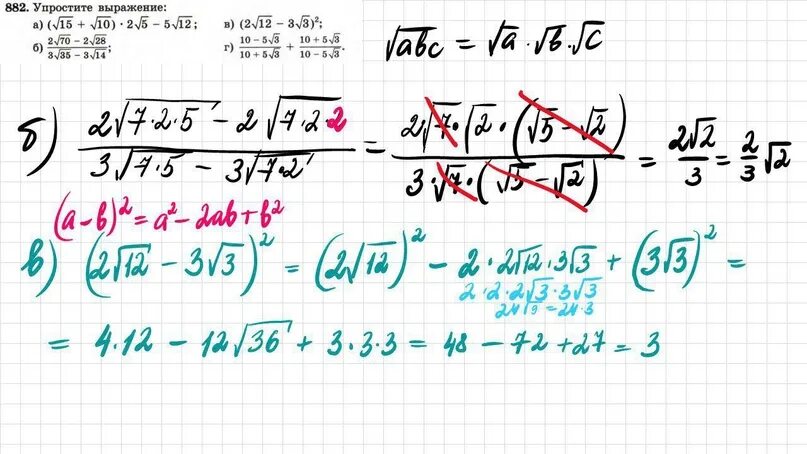 882. Упростите выражение:
а) (√15 + √10) · 2√5 − 5√12; в) (2√12 − 3√3)²;
б) (2√70 − 2√28)/(3√35 − 3√14); г) (10 − 5√3)/(10 + 5√3) + (10 + 5√3)/(10 − 5√3).
√abc = √a · √b · √c
б) (2√7·2·5 − 2√7·2·2)/(3√7·5 − 3√7·2) = (2·√7·√2·(√5 − √2))/(3·√7·(√5 − √2)) = 2√2/3 = 2/3 √2
(a − b)² = a² − 2ab + b²
в) (2√12 − 3√3)² = (2√12)² − 2 · 2√12 · 3√3 + (3√3)² =
2 · 2 · 2√3 · 3√3
24√9 = 24·3
= 4·12 − 12√36 + 3·3·3 = 48 − 72 + 27 = 3